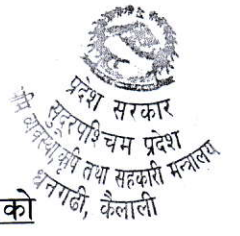 प्रदेश सरकार
सुदूरपश्चिम प्रदेश
भूमि व्यवस्था, कृषि तथा सहकारी मन्त्रालय
धनगढी, कैलाली
को